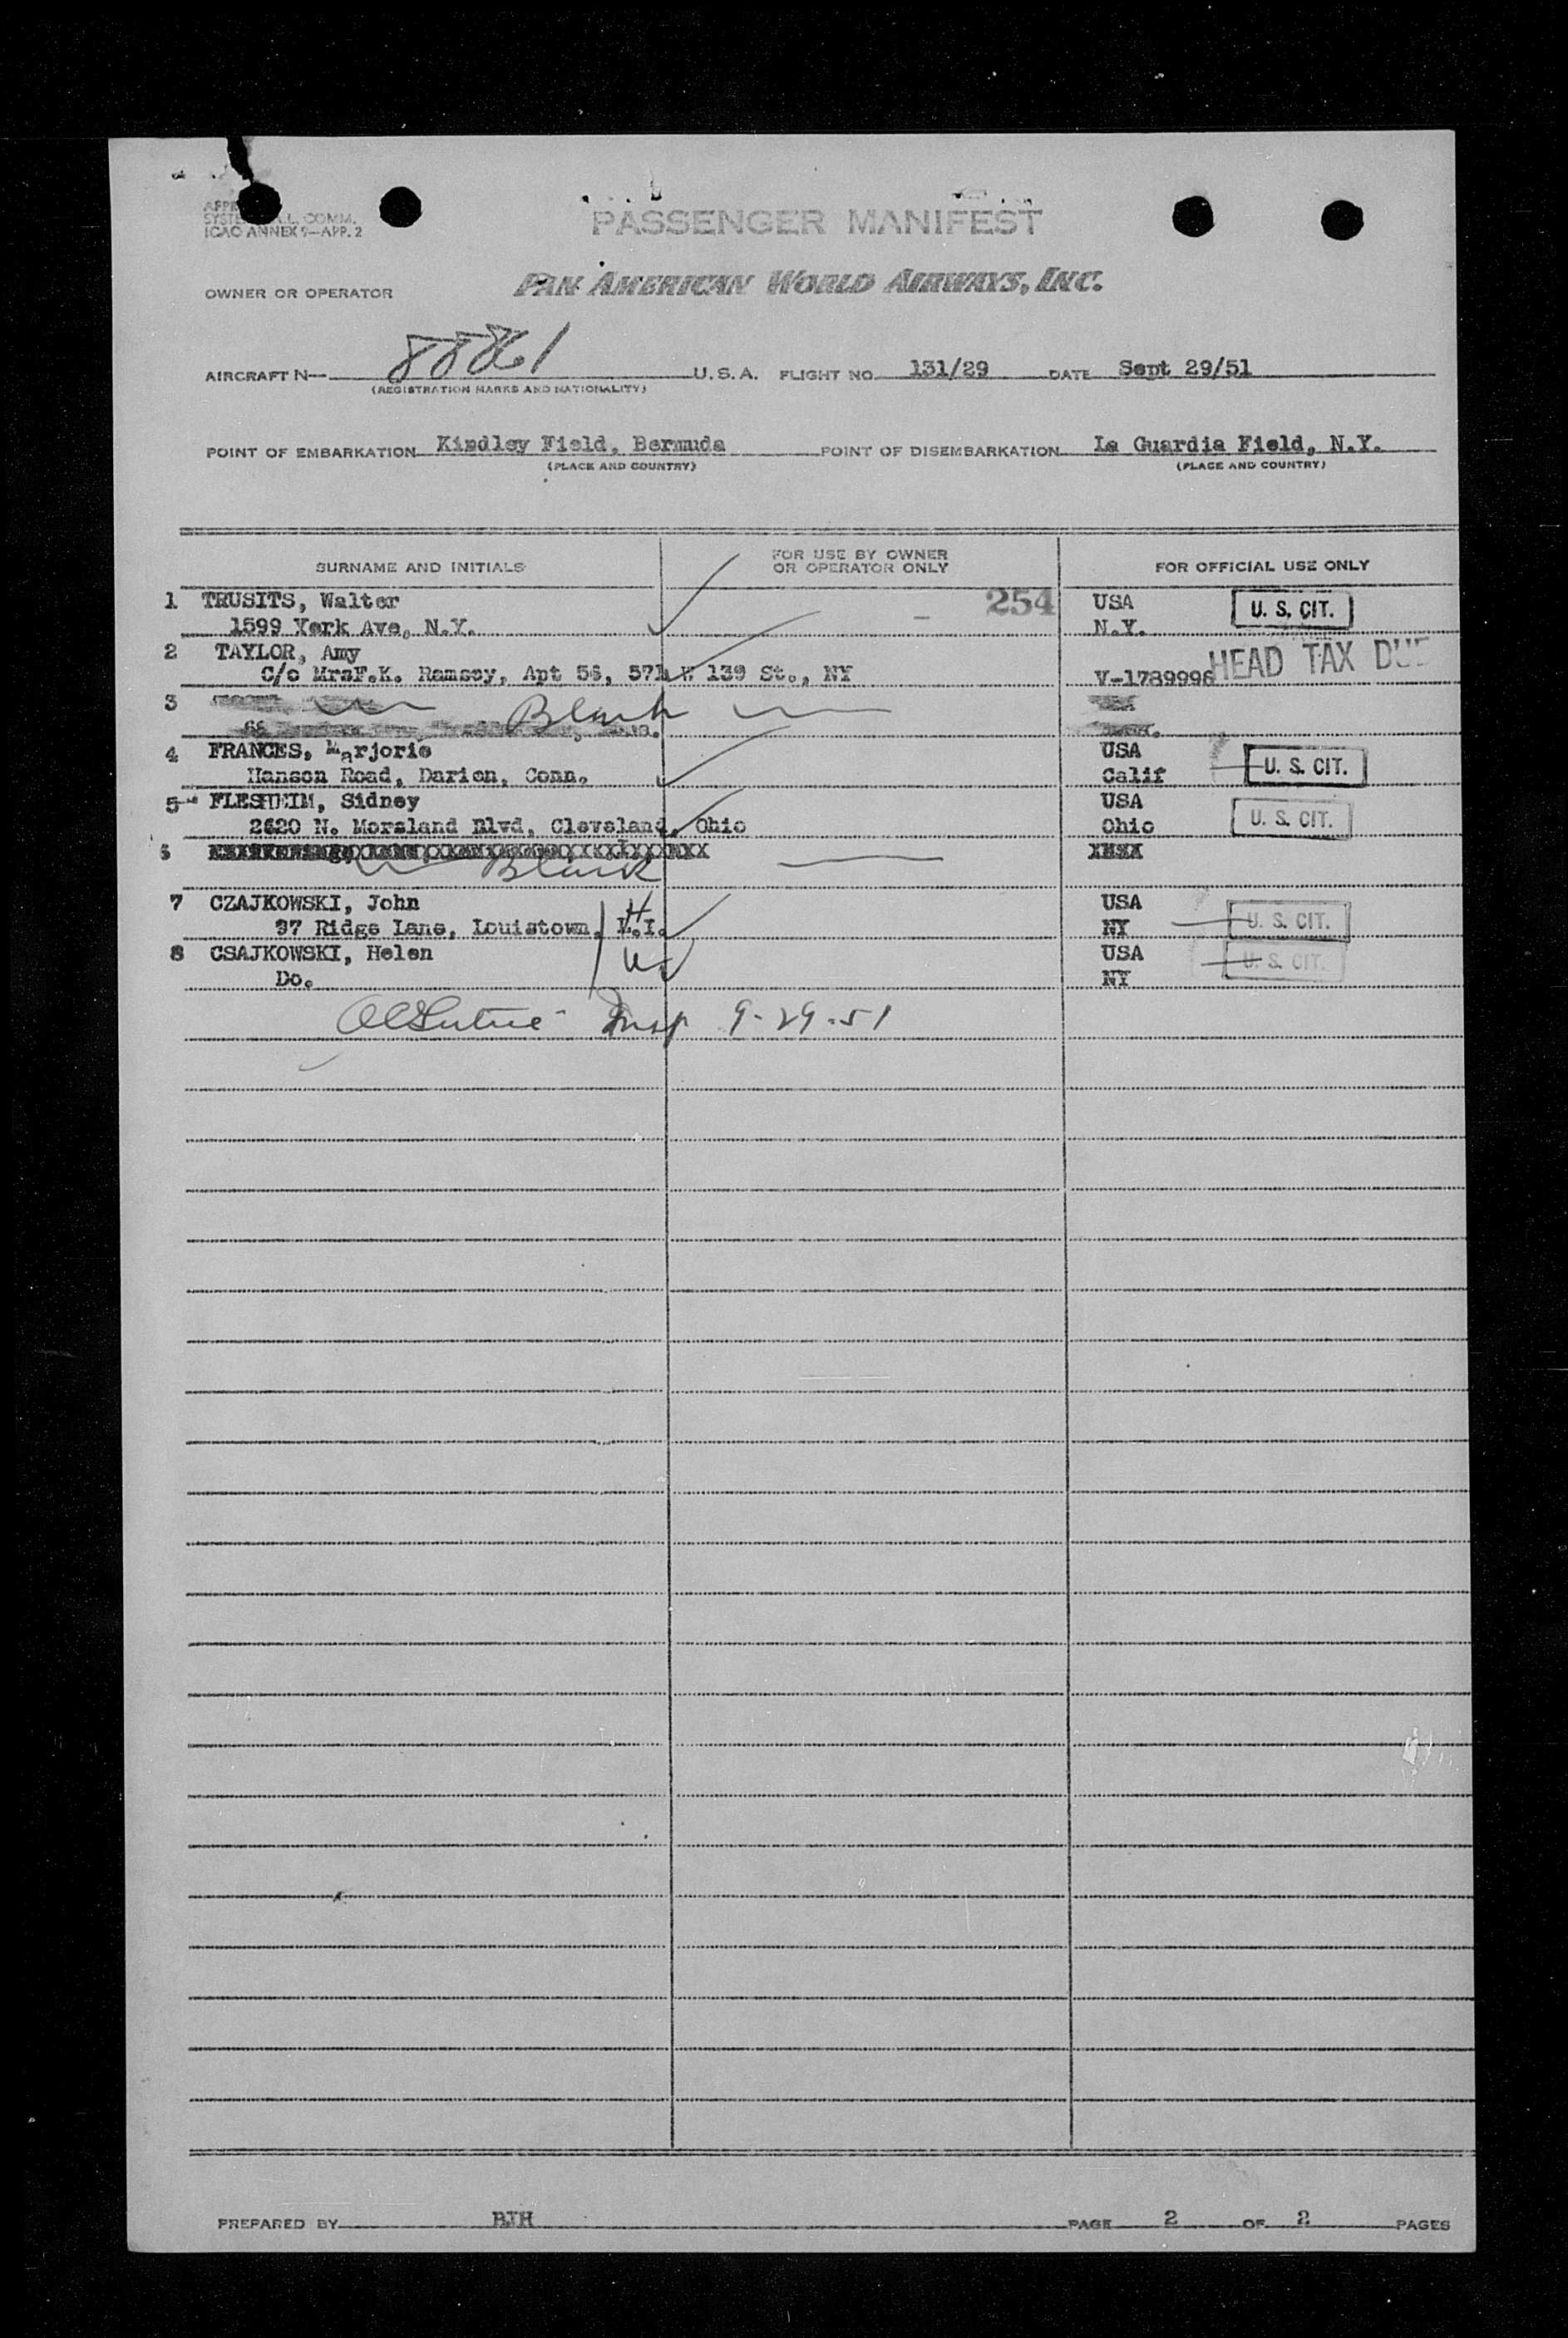 ICAO ANNEX 9—APP. 2
PASSENGER MANIFEST
OWNER OR OPERATOR PAN AMERICAN WORLD AIRWAYS, INC.
AIRCRAFT N— 88861 U.S.A. FLIGHT NO. 131/29 DATE Sept 29/51
(REGISTRATION MARKS AND NATIONALITY)
POINT OF EMBARKATION Kindley Field, Bermuda POINT OF DISEMBARKATION La Guardia Field, N.Y.
(PLACE AND COUNTRY) (PLACE AND COUNTRY)
SURNAME AND INITIALS FOR USE BY OWNER OR OPERATOR ONLY FOR OFFICIAL USE ONLY
1 TRUSITS, Walter 254 USA U. S. CIT.
1599 York Ave, N.Y. N.Y.
2 TAYLOR, Amy
C/o MrsF.K. Ramsey, Apt 56, 571 W 139 St., NY V-1789998 HEAD TAX DUE
3 Blank
4 FRANCES, Marjorie USA
Hanson Road, Darien, Conn. Calif U. S. CIT.
5 FLESHEIM, Sidney USA
2620 N. Moreland Blvd, Cleveland, Ohio Ohio U. S. CIT.
6 Blank
7 CZAJKOWSKI, John H USA
37 Ridge Lane, Louistown, L.I. NY U. S. CIT.
8 CSAJKOWSKI, Helen W USA U. S. CIT.
Do. NY
Insp 9-29-51
PREPARED BY BJH PAGE 2 OF 2 PAGES